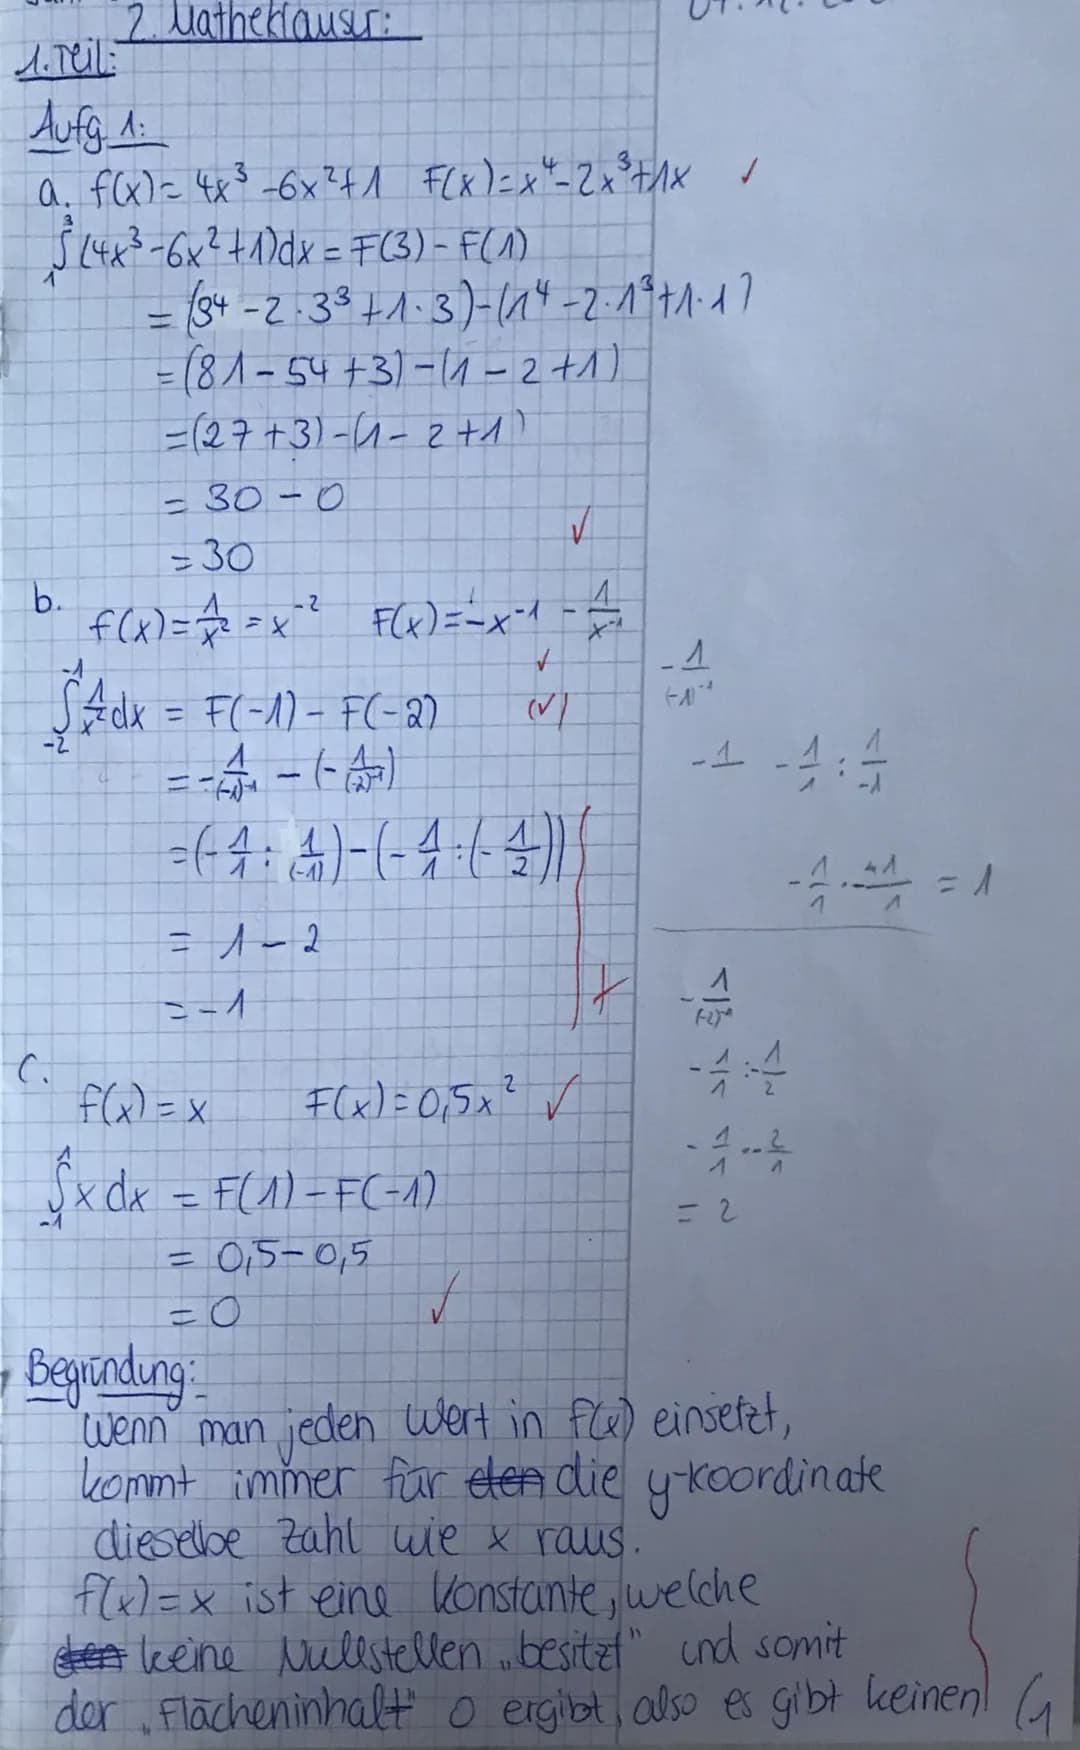 2. Matheklausur:
1. Teil:
Aufg. 1:
a. f(x) = 4x³ - 6x² + 1 F(x) = x⁴ - 2x³ + 1x ✓
₁∫³ (4x³ - 6x² + 1)dx = F(3) - F(1)
= (3⁴ - 2·3³ + 1·3) - (1⁴ - 2·1³ + 1·1)
= (81 - 54 + 3) - (1 - 2 + 1)
= (27 + 3) - (1 - 2 + 1)
= 30 - 0
= 30 ✓
b. f(x) = 1/x² = x⁻² F(x) = -x⁻¹ - 1/x⁻¹ ✓
₋₂∫⁻¹ 1/x² dx = F(-1) - F(-2) (✓)
= -1/(-1)⁻¹ - (-1/(-2)⁻¹)
= (-1/1 : 1/(-1)) - (-1/1 : (-1/2))
= 1 - 2
= -1
-1/(-1)⁻¹
-1 -1/1 : 1/-1
-1/1 · -1/1 = 1
-1/(-2)⁻¹
-1/1 : -1/2
-1/1 · -2/1
= 2
c. f(x) = x F(x) = 0,5x² ✓
₋₁∫¹ x dx = F(1) - F(-1)
= 0,5 - 0,5
= 0 ✓
Begründung:
Wenn man jeden Wert in f(x) einsetzt,
kommt immer für den die y-koordinate
dieselbe Zahl wie x raus.
f(x) = x ist eine Konstante, welche
keine Nullstellen „besitzt" und somit
der „Flächeninhalt" 0 ergibt, also es gibt keinen